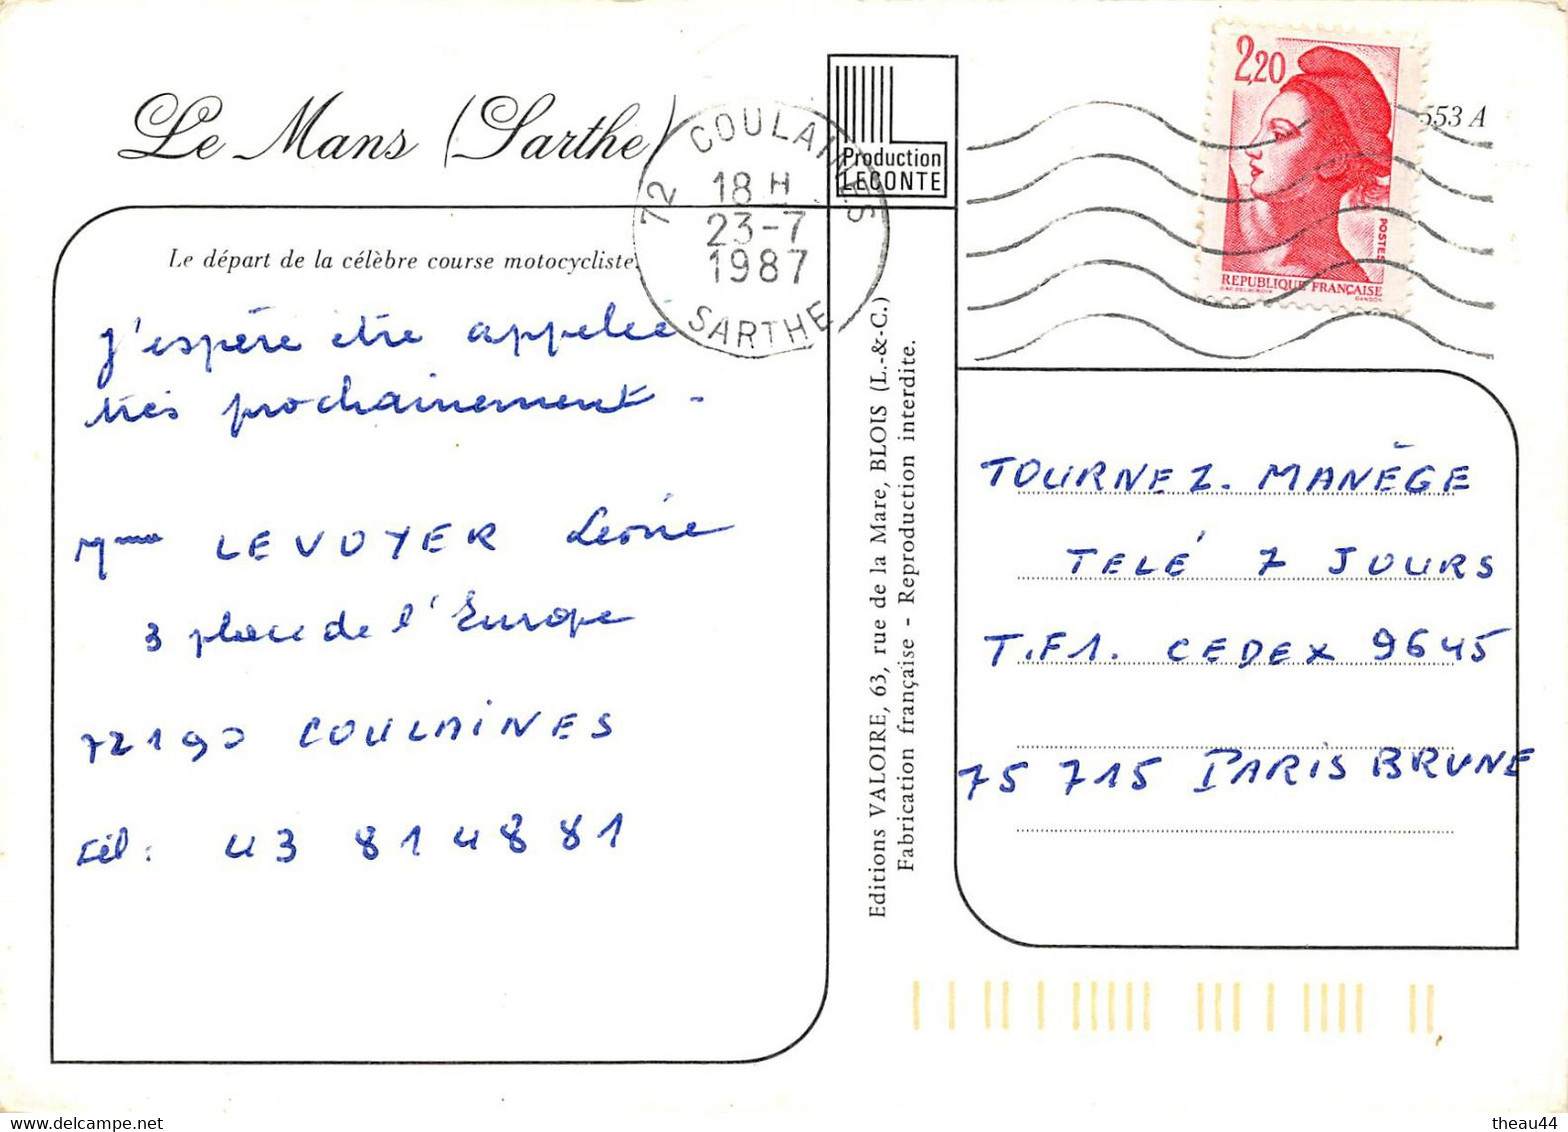 Le Mans (Sarthe)
Le départ de la célèbre course motocycliste.
J'espère être appelée
très prochainement -
Mme LEVOYER Léonie
3 place de l'Europe
72190 COULAINES
tél : 43 81 48 81
72 COULAINES
18 H
23-7
1987
SARTHE
Production
LECONTE
Editions VALOIRE, 63, rue de la Mare, BLOIS (L.-&-C.)
Fabrication française - Reproduction interdite.
2,20
POSTES
REPUBLIQUE FRANÇAISE
GANDON
553 A
TOURNEZ. MANÈGE
TELÉ 7 JOURS
T.F1. CEDEX 9645
75 715 PARIS BRUNE
www.delcampe.net
theau44